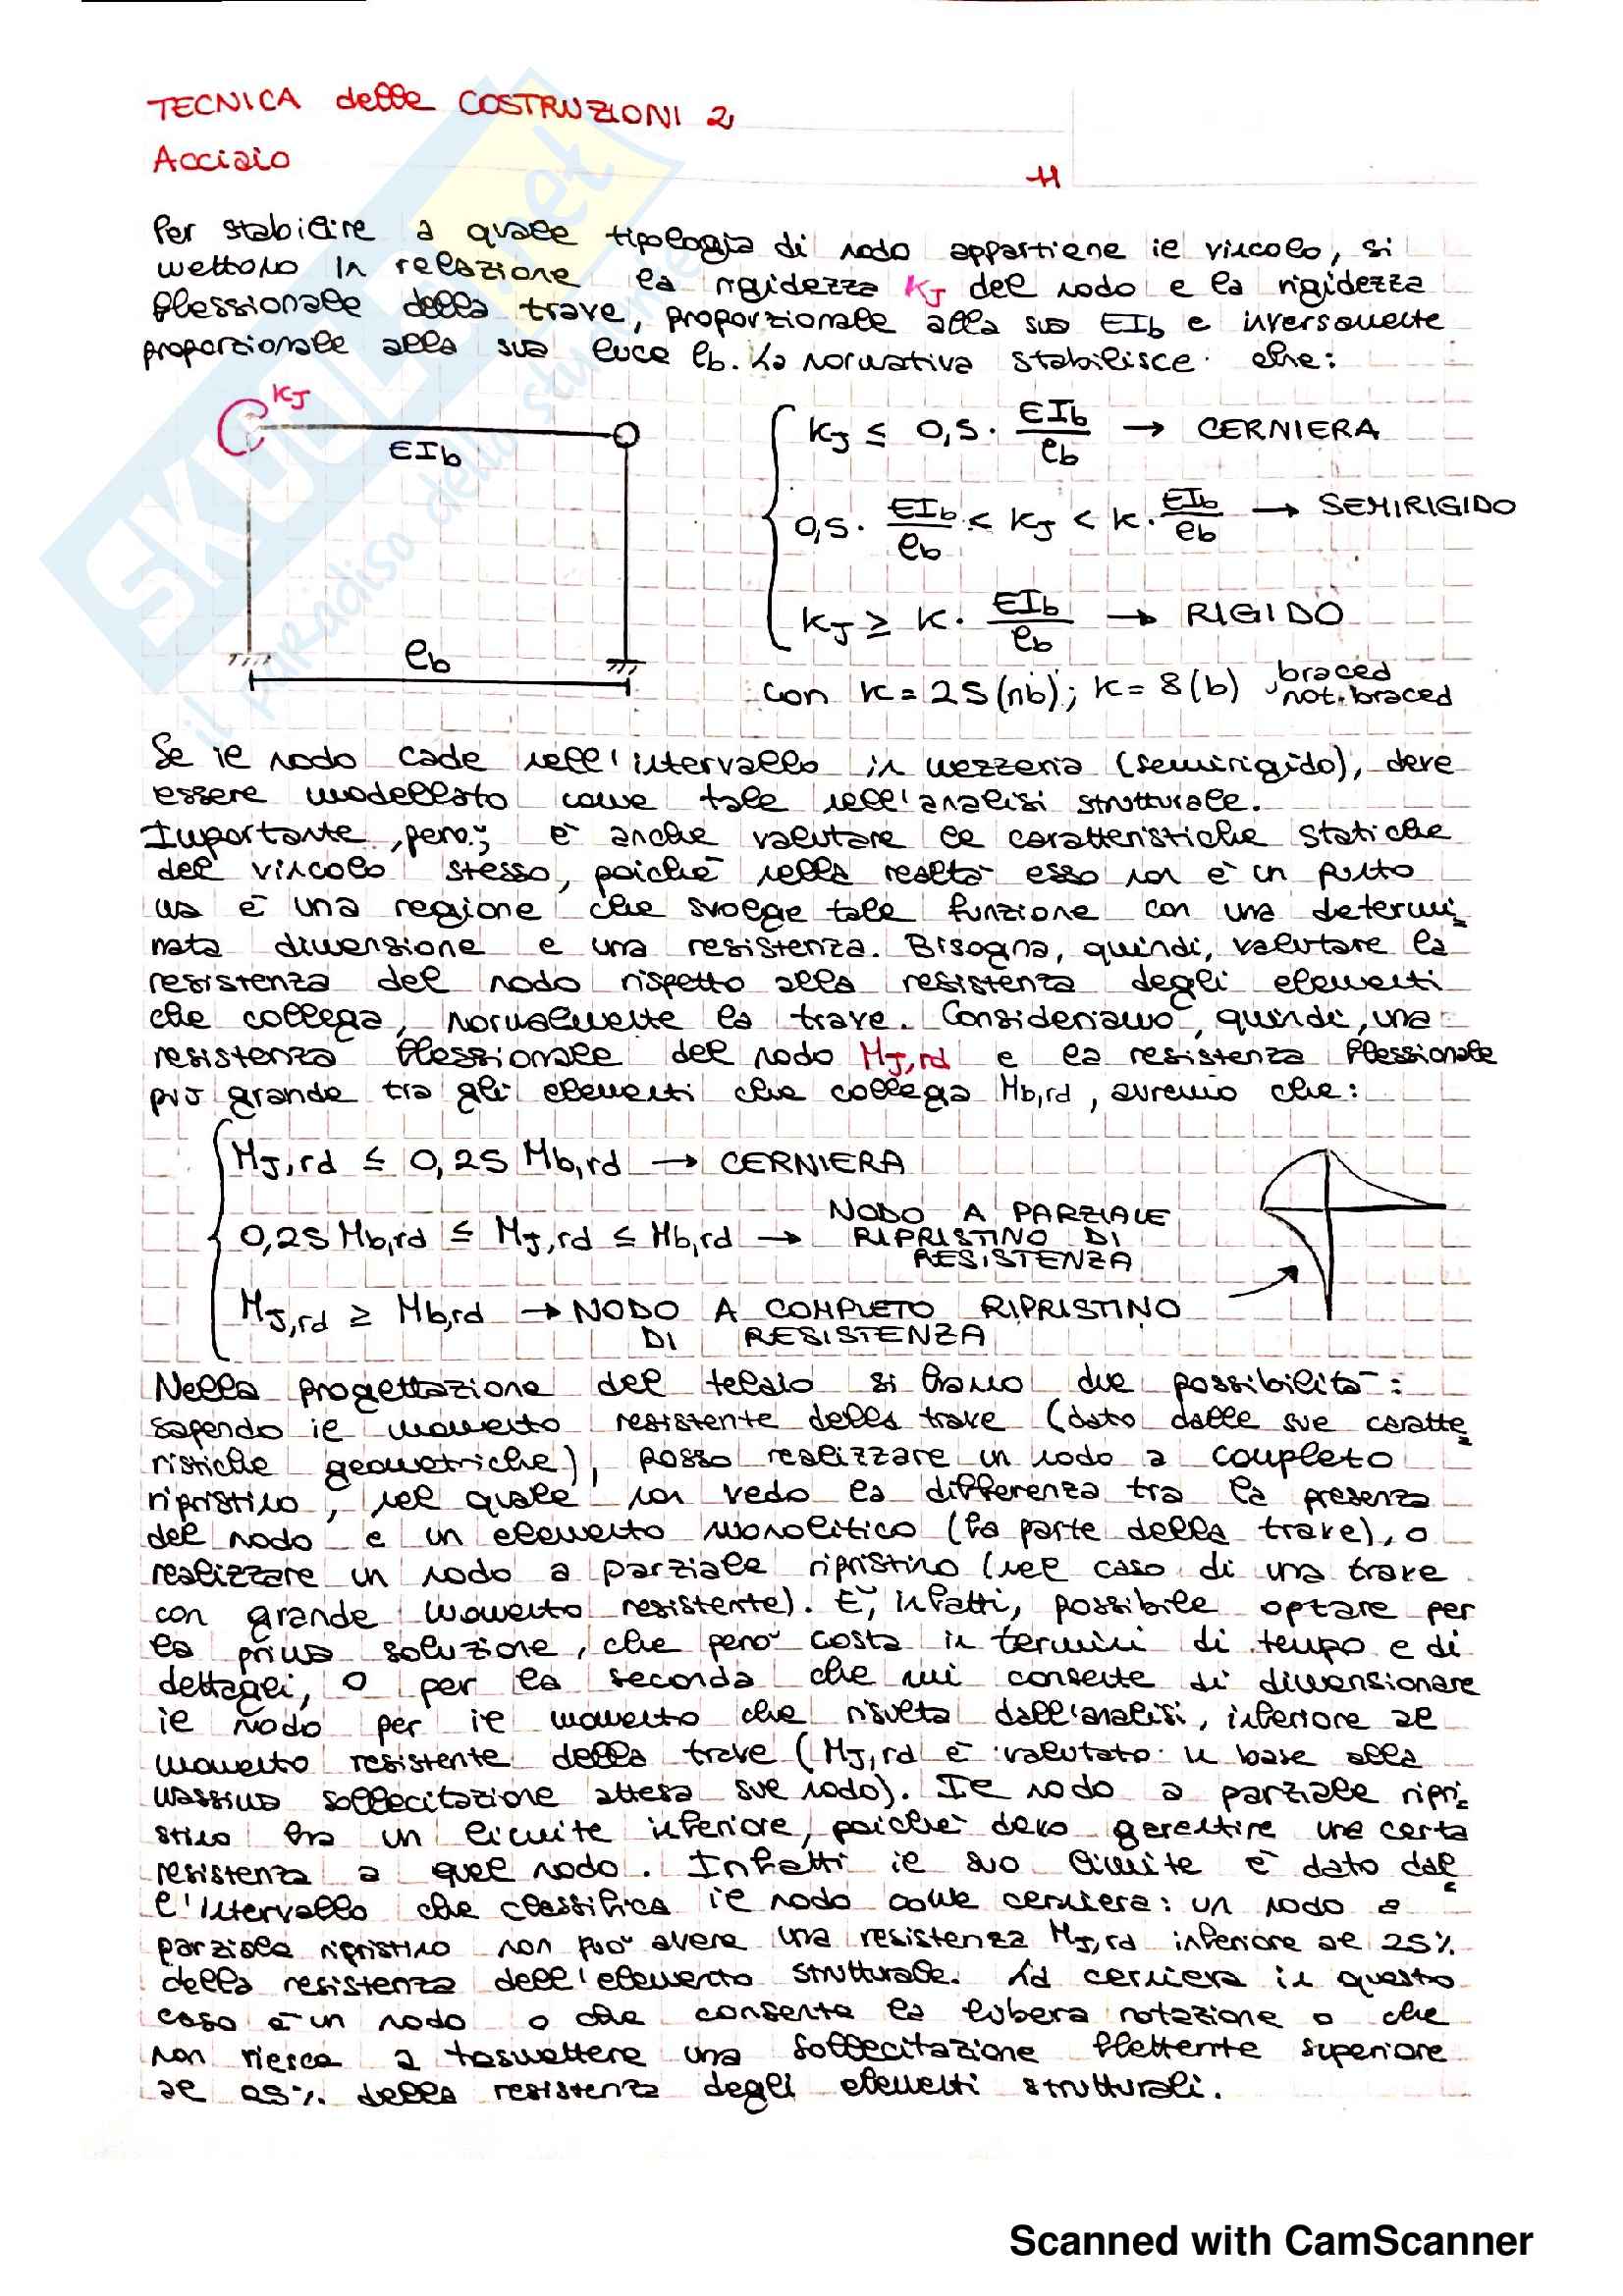 TECNICA delle COSTRUZIONI 2
Acciaio
Per stabilire a quale tipologia di nodo appartiene il vincolo, si
mettono in relazione la rigidezza KJ del nodo e la rigidezza
flessionale della trave, proporzionale alla sua EIb e inversamente
proporzionale alla sua luce lb. La normativa stabilisce che:
KJ
EIb
lb
KJ ≤ 0,5 · EIb/lb → CERNIERA
0,5 · EIb/lb < KJ < K · EIb/lb → SEMIRIGIDO
KJ ≥ K · EIb/lb → RIGIDO
con K = 25 (nb); K = 8 (b)
braced
not braced
Se il nodo cade nell'intervallo in mezzeria (semirigido), deve
essere modellato come tale nell'analisi strutturale.
Importante, però, è anche valutare le caratteristiche statiche
del vincolo stesso, poiché nella realtà esso non è un punto
ma è una regione che svolge tale funzione con una determi
nata dimensione e una resistenza. Bisogna, quindi, valutare la
resistenza del nodo rispetto alla resistenza degli elementi
che collega, normalmente la trave. Consideriamo, quindi, una
resistenza flessionale del nodo MJ,rd e la resistenza flessionale
più grande tra gli elementi che collega Mb,rd, avremo che:
MJ,rd ≤ 0,25 Mb,rd → CERNIERA
0,25 Mb,rd ≤ MJ,rd ≤ Mb,rd → NODO A PARZIALE
RIPRISTINO DI
RESISTENZA
MJ,rd ≥ Mb,rd → NODO A COMPLETO RIPRISTINO
DI RESISTENZA
Nella progettazione del telaio si hanno due possibilità:
sapendo il momento resistente della trave (dato dalle sue caratte
ristiche geometriche), posso realizzare un nodo a completo
ripristino, nel quale non vedo la differenza tra la presenza
del nodo e un elemento monolitico (fa parte della trave), o
realizzare un nodo a parziale ripristino (nel caso di una trave
con grande momento resistente). È, infatti, possibile optare per
la prima soluzione, che però costa in termini di tempo e di
dettagli, o per la seconda che mi consente di dimensionare
il nodo per il momento che risulta dall'analisi, inferiore al
momento resistente della trave (MJ,rd è valutato in base alla
massima sollecitazione attesa sul nodo). Il nodo a parziale ripri
stino ha un limite inferiore, poiché devo garantire una certa
resistenza a quel nodo. Infatti il suo limite è dato dal
l'intervallo che classifica il nodo come cerniera: un nodo a
parziale ripristino non può avere una resistenza MJ,rd inferiore al 25%
della resistenza dell'elemento strutturale. La cerniera in questo
caso è un nodo o che consente la libera rotazione o che
non riesce a trasmettere una sollecitazione flettente superiore
al 25% della resistenza degli elementi strutturali.
SKUOLA.net
il paradiso dello studente
Scanned with CamScanner